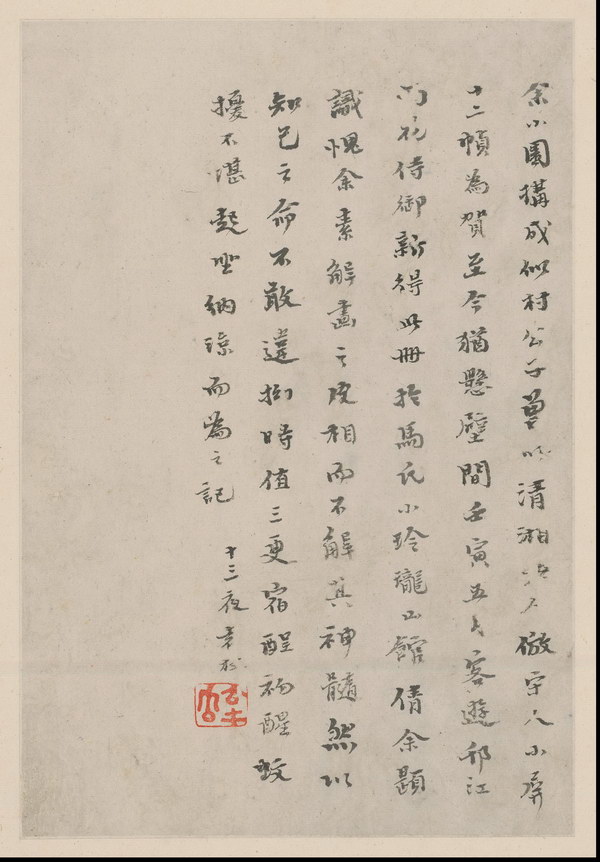 余小園搆成似村公子曽以清湘老人倣宋人小屏
十二幀為賀至今猶懸壁間壬寅五月客遊邗江
侍御新得此冊於馬氏小玲瓏山館倩余題
識愧余素解畫之皮相而不解其神髓然以
知己之命不敢違抝時值三更宿酲初醒蚊
擾不堪起坐納涼而為之記
十三夜